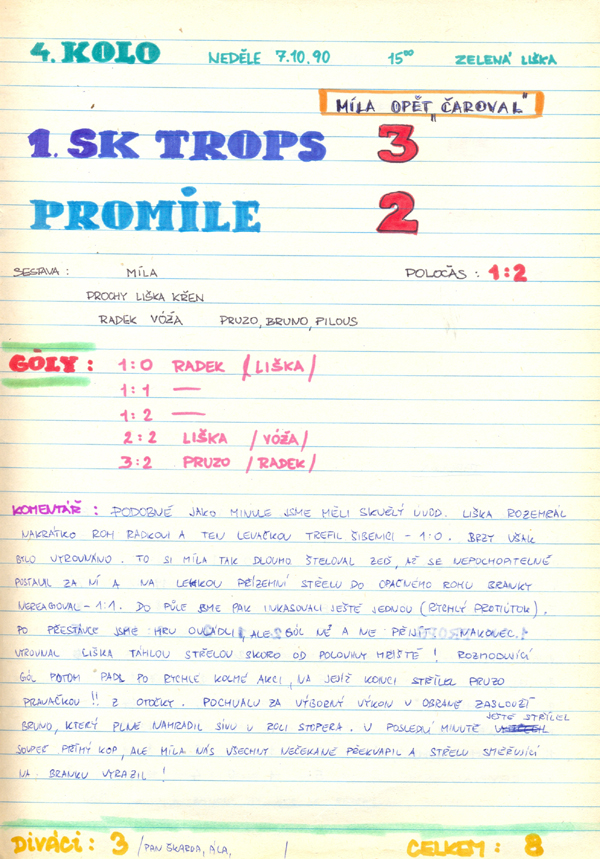 4. KOLO NEDĚLE 7.10.90 15⁰⁰ ZELENÁ LIŠKA
MÍLA OPĚT „ČAROVAL"
1. SK TROPS 3
PROMILE 2
SESTAVA : MÍLA POLOČAS : 1:2
PROCHY LIŠKA KŘEN
RADEK VÓŽA PRUZO, BRUNO, PILOUS
GÓLY : 1:0 RADEK /LIŠKA/
1:1 —
1:2 —
2:2 LIŠKA /VÓŽA/
3:2 PRUZO /RADEK/
KOMENTÁŘ : PODOBNĚ JAKO MINULE JSME MĚLI SKVĚLÝ ÚVOD. LIŠKA ROZEHRÁL
NAKRÁTKO ROH RÁDKOVI A TEN LEVAČKOU TREFIL ŠIBENICI - 1:0. BRZY VŠAK
BYLO VYROVNÁNO. TO SI MÍLA TAK DLOUHO ŠTELOVAL ZEĎ, AŽ SE NEPOCHOPITELNĚ
POSTAVIL ZA NÍ A NA LEHKOU PŘÍZEMNÍ STŘELU DO OPAČNÉHO ROHU BRANKY
NEREAGOVAL - 1:1. DO PŮLE JSME PAK INKASOVALI JEŠTĚ JEDNOU (RYCHLÝ PROTIÚTOK).
PO PŘESTÁVCE JSME HRU OVLÁDLI, ALE GÓL NE A NE PŘIJÍT. NAKONEC
VYROVNAL LIŠKA TÁHLOU STŘELOU SKORO OD POLOVINY HŘIŠTĚ ! ROZHODUJÍCÍ
GÓL POTOM PADL PO RYCHLÉ KOLMÉ AKCI, NA JEJÍŽ KONCI STŘÍLEL PRUZO
PRAVAČKOU !! Z OTOČKY. POCHVALU ZA VÝBORNÝ VÝKON V OBRANĚ ZASLOUŽÍ
BRUNO, KTERÝ PLNĚ NAHRADIL SÍVU V ROLI STOPERA. V POSLEDNÍ MINUTĚ JEŠTĚ STŘÍLEL
SOUPEŘ PŘÍMÝ KOP, ALE MÍLA NÁS VŠECHNY NEČEKANĚ PŘEKVAPIL A STŘELU SMĚŘUJÍCÍ
NA BRANKU VYRAZIL !
DIVÁCI : 3 /PAN ŠKARDA, ÁLA, / CELKEM : 8